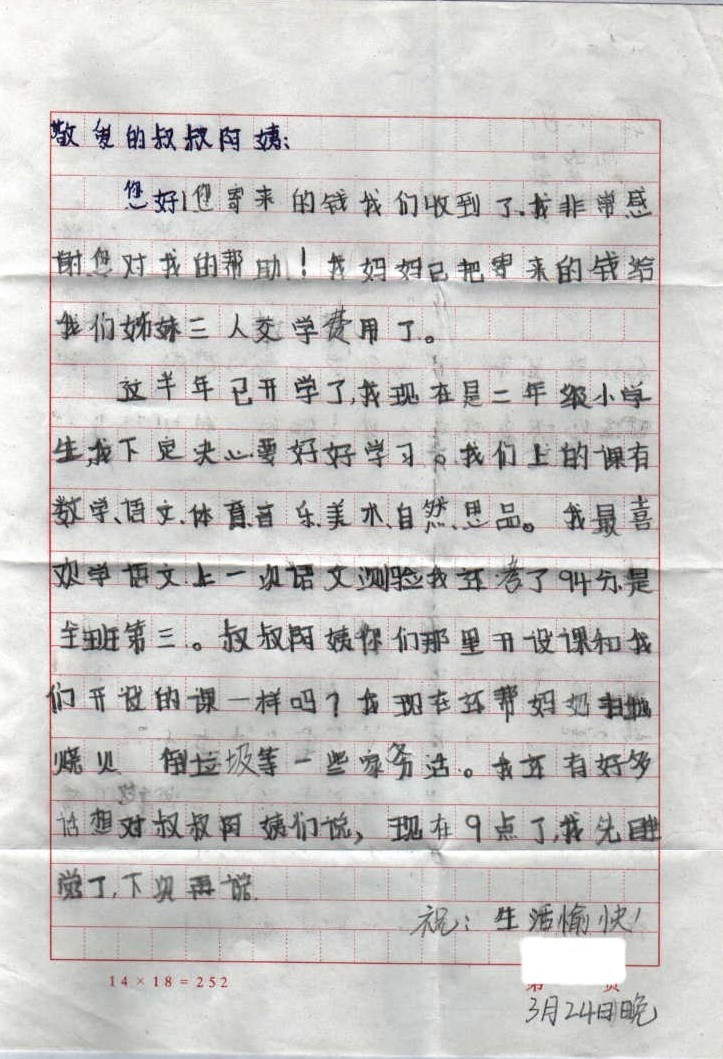 敬爱的叔叔阿姨:
您好!您寄来的钱我们收到了.我非常感
谢您对我的帮助!我妈妈已把寄来的钱给
我们姊妹三人交学费用了。
这半年已开学了,我现在是二年级小学
生,我下定决心要好好学习。我们上的课有
数学、语文、体育、音乐、美术、自然、思品。我最喜
欢学语文上一次语文测验我还考了94分是
全班第三。叔叔阿姨你们那里开设课和我
们开设的课一样吗?我现在还帮妈妈扫地
烧火 倒垃圾等一些家务活。我还有好多
话想对叔叔阿姨们说,现在9点了,我先睡
觉了,下次再谈.
祝:生活愉快!
14×18=252
第 页
3月24日晚